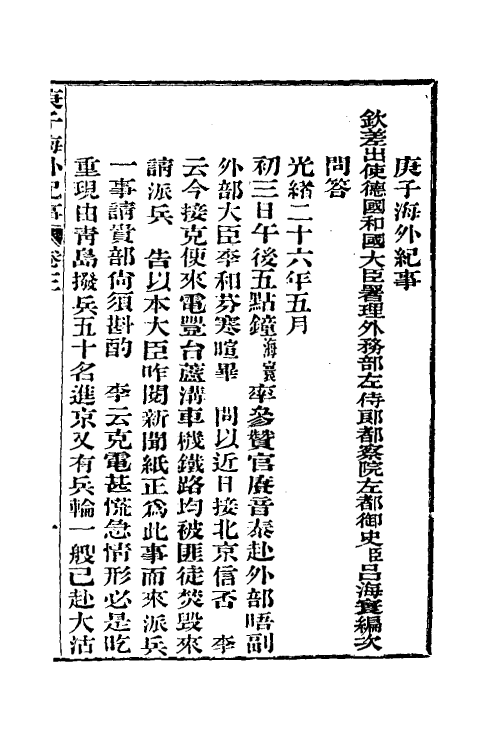 庚子海外紀事
欽差出使德國和國大臣署理外務部左侍郎都察院左都御史臣呂海寰編次
問答
光緒二十六年五月
初三日午後五點鐘海寰率參贊官賡音泰赴外部晤副
外部大臣李和芬寒暄畢　問以近日接北京信否　李
云今接克使來電豐台蘆溝車機鐵路均被匪徒焚毀來
請派兵　告以本大臣昨閱新聞紙正爲此事而來派兵
一事請貴部尙須斟酌　李云克電甚慌急情形必是吃
重現由靑島撥兵五十名進京又有兵輪一般已赴大沽
庚子海外紀事　卷三　一